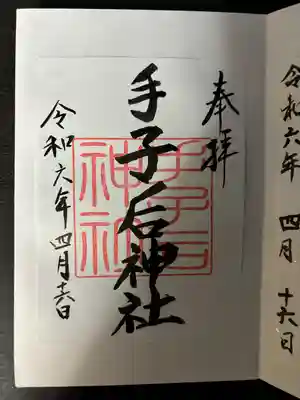 令和六年 四月 十六日
奉拝
手子后神社
手子后
神社
令和六年 四月十六日